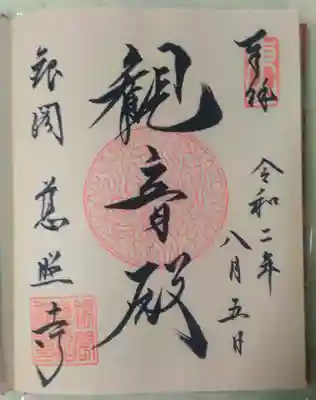 奉拝
令和二年
八月五日
觀音殿
銀閣 慈照寺